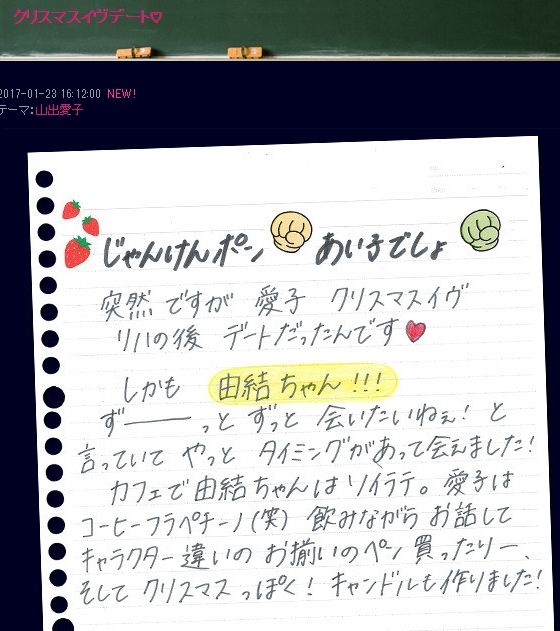 クリスマスイヴデート♡
2017-01-23 16:12:00 NEW!
テーマ:山出愛子
じゃんけんポン あい子でしょ
突然ですが 愛子 クリスマスイヴ
リハの後 デートだったんです♥
しかも 由結ちゃん!!!
ず―――っと ずっと 会いたいねぇ! と
言っていて やっと タイミングがあって会えました!
カフェで由結ちゃんはソイラテ。愛子は
コーヒーフラペチーノ(笑) 飲みながら お話して
キャラクター違いの お揃いのペン 買ったりー、
そして クリスマスっぽく! キャンドルも作りました!